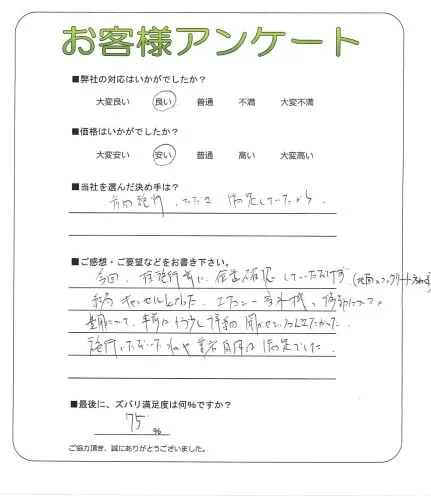 お客様アンケート
■弊社の対応はいかがでしたか？
大変良い 良い 普通 不満 大変不満
■価格はいかがでしたか？
大変安い 安い 普通 高い 大変高い
■当社を選んだ決め手は？
前回施行、いただき 満足していたから。
■ご感想・ご要望などをお書き下さい。
今回、 に 確認していただけず
キャンセル エアコン 室外機の 移動について
費用について、事前に もう少し詳細 聞かせて
施行いただいた 業者自体は満足でした。
■最後に、ズバリ満足度は何％ですか？
75 ％
ご協力頂き、誠にありがとうございました。